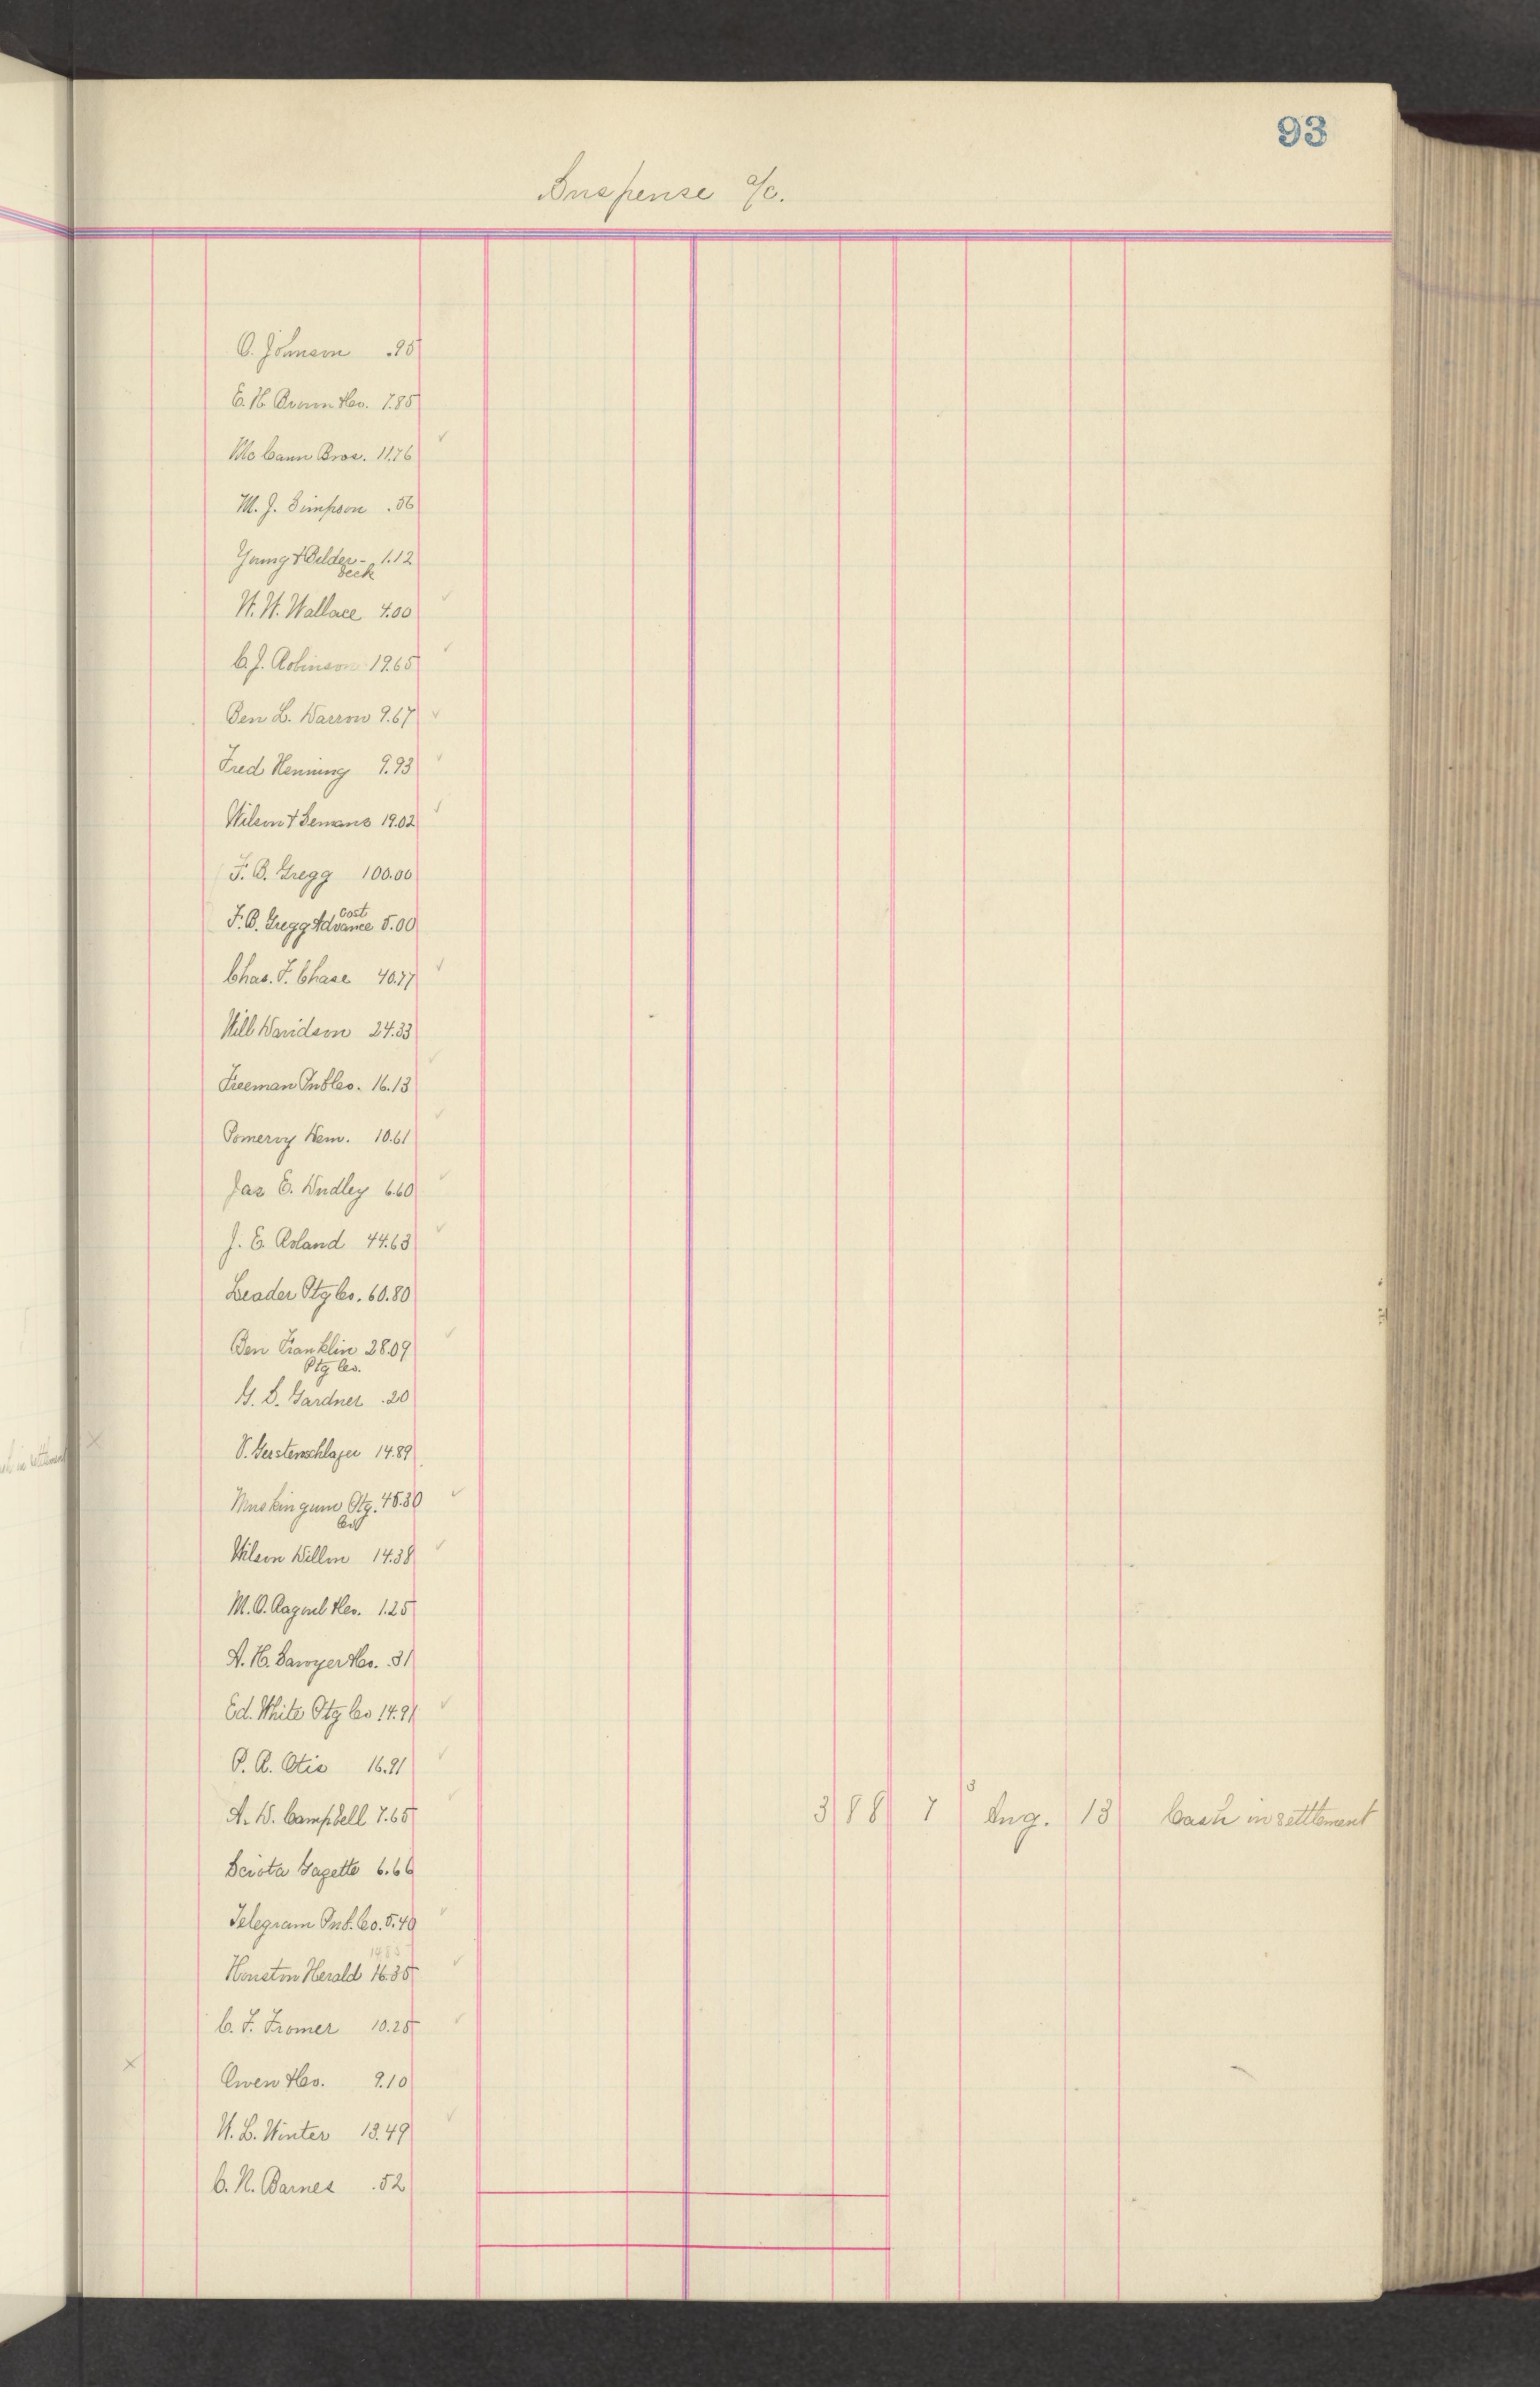 93
Suspense a/c.
O. Johnson .95
E. H. Brown &Co. 7.85
McCann Bros. 11.76
M. J. Simpson .56
Young & Bilder- 1.12
beck
W. W. Wallace 4.00
C. J. Robinson 19.65
Ben L. Darrow 9.67
Fred Henning 9.93
Wilson & Semans 19.02
F. B. Gregg 100.00
Cost
F. B. Gregg Advance 5.00
Chas. F. Chase 40.77
Will Davidson 24.33
Freeman Pub Co. 16.13
Pomeroy Dem. 10.61
Jas E. Dudley 6.60
J. E. Roland 44.63
Leader Ptg Co. 60.80
Ben Franklin 28.09
Ptg Co.
G. S. Gardner .20
V. Gerstenschlager 14.89
Muskingum Ptg. 45.30
Co
Wilson Dillon 14.38
M. O. &Co. 1.25
A. H. Sawyer &Co. .31
Ed. White Ptg Co 14.91
P. R. Otis 16.91
A. D. Campbell 7.65 3 88 7 3 Aug. 13 Cash in settlement
Sciota Gazette 6.66
Telegram Pub. Co. 5.40
14.85
Houston Herald 16.35
C. F. Fromer 10.25
Owen &Co. 9.10
W. L. Winter 13.49
C. N. Barnes .52